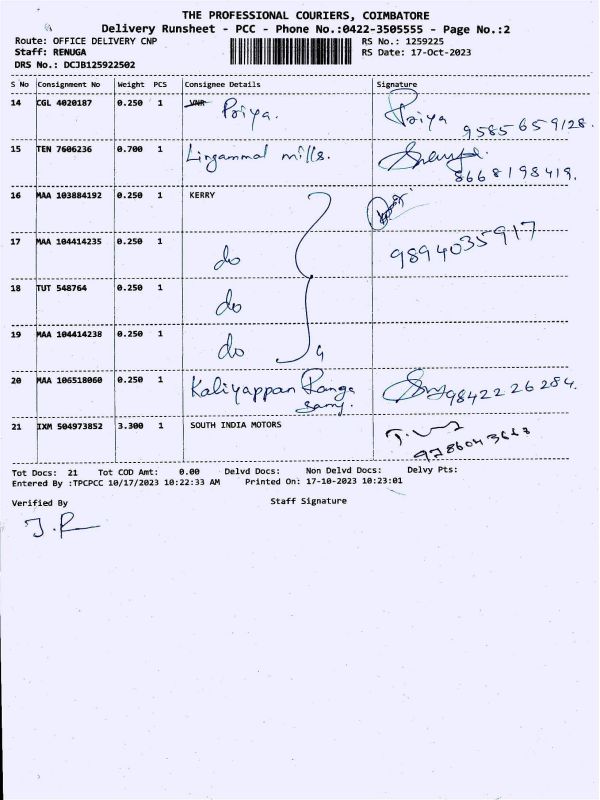 THE PROFESSIONAL COURIERS, COIMBATORE
Delivery Runsheet - PCC - Phone No.:0422-3505555 - Page No.:2
Route: OFFICE DELIVERY CNP RS No.: 1259225
Staff: RENUGA RS Date: 17-Oct-2023
DRS No.: DCJB125922502
S No Consignment No Weight PCS Consignee Details Signature
14 CGL 4020187 0.250 1 VNR Priya. Priya 9585659128.
15 TEN 7606236 0.700 1 Lingammal mills. 8668198419.
16 MAA 103884192 0.250 1 KERRY
17 MAA 104414235 0.250 1 do 9894035917
18 TUT 548764 0.250 1 do
19 MAA 104414238 0.250 1 do 4
20 MAA 106518060 0.250 1 Kaliyappan Ranga 9842226284.
samy.
21 IXM 504973852 3.300 1 SOUTH INDIA MOTORS
Tot Docs: 21 Tot COD Amt: 0.00 Delvd Docs: Non Delvd Docs: Delvy Pts:
Entered By :TPCPCC 10/17/2023 10:22:33 AM Printed On: 17-10-2023 10:23:01
Verified By Staff Signature
J.R